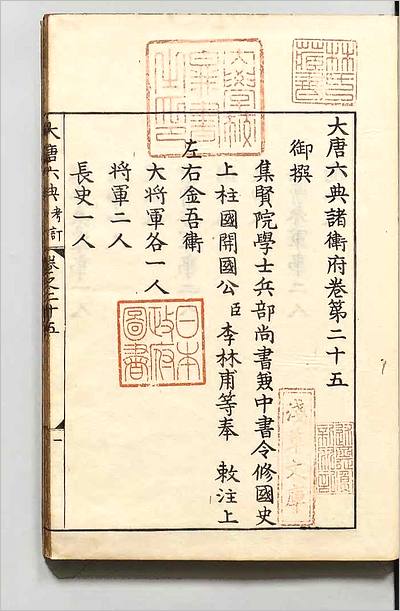 大唐六典諸衛府卷第二十五
御撰
集賢院學士兵部尚書兼中書令修國史
上柱國開國公臣李林甫等奉 敕注上
左右金吾衛
大將軍各一人
將軍二人
長史一人
大唐六典考訂 卷之二十五 一
林氏藏書
淺草文庫
日本政府圖書